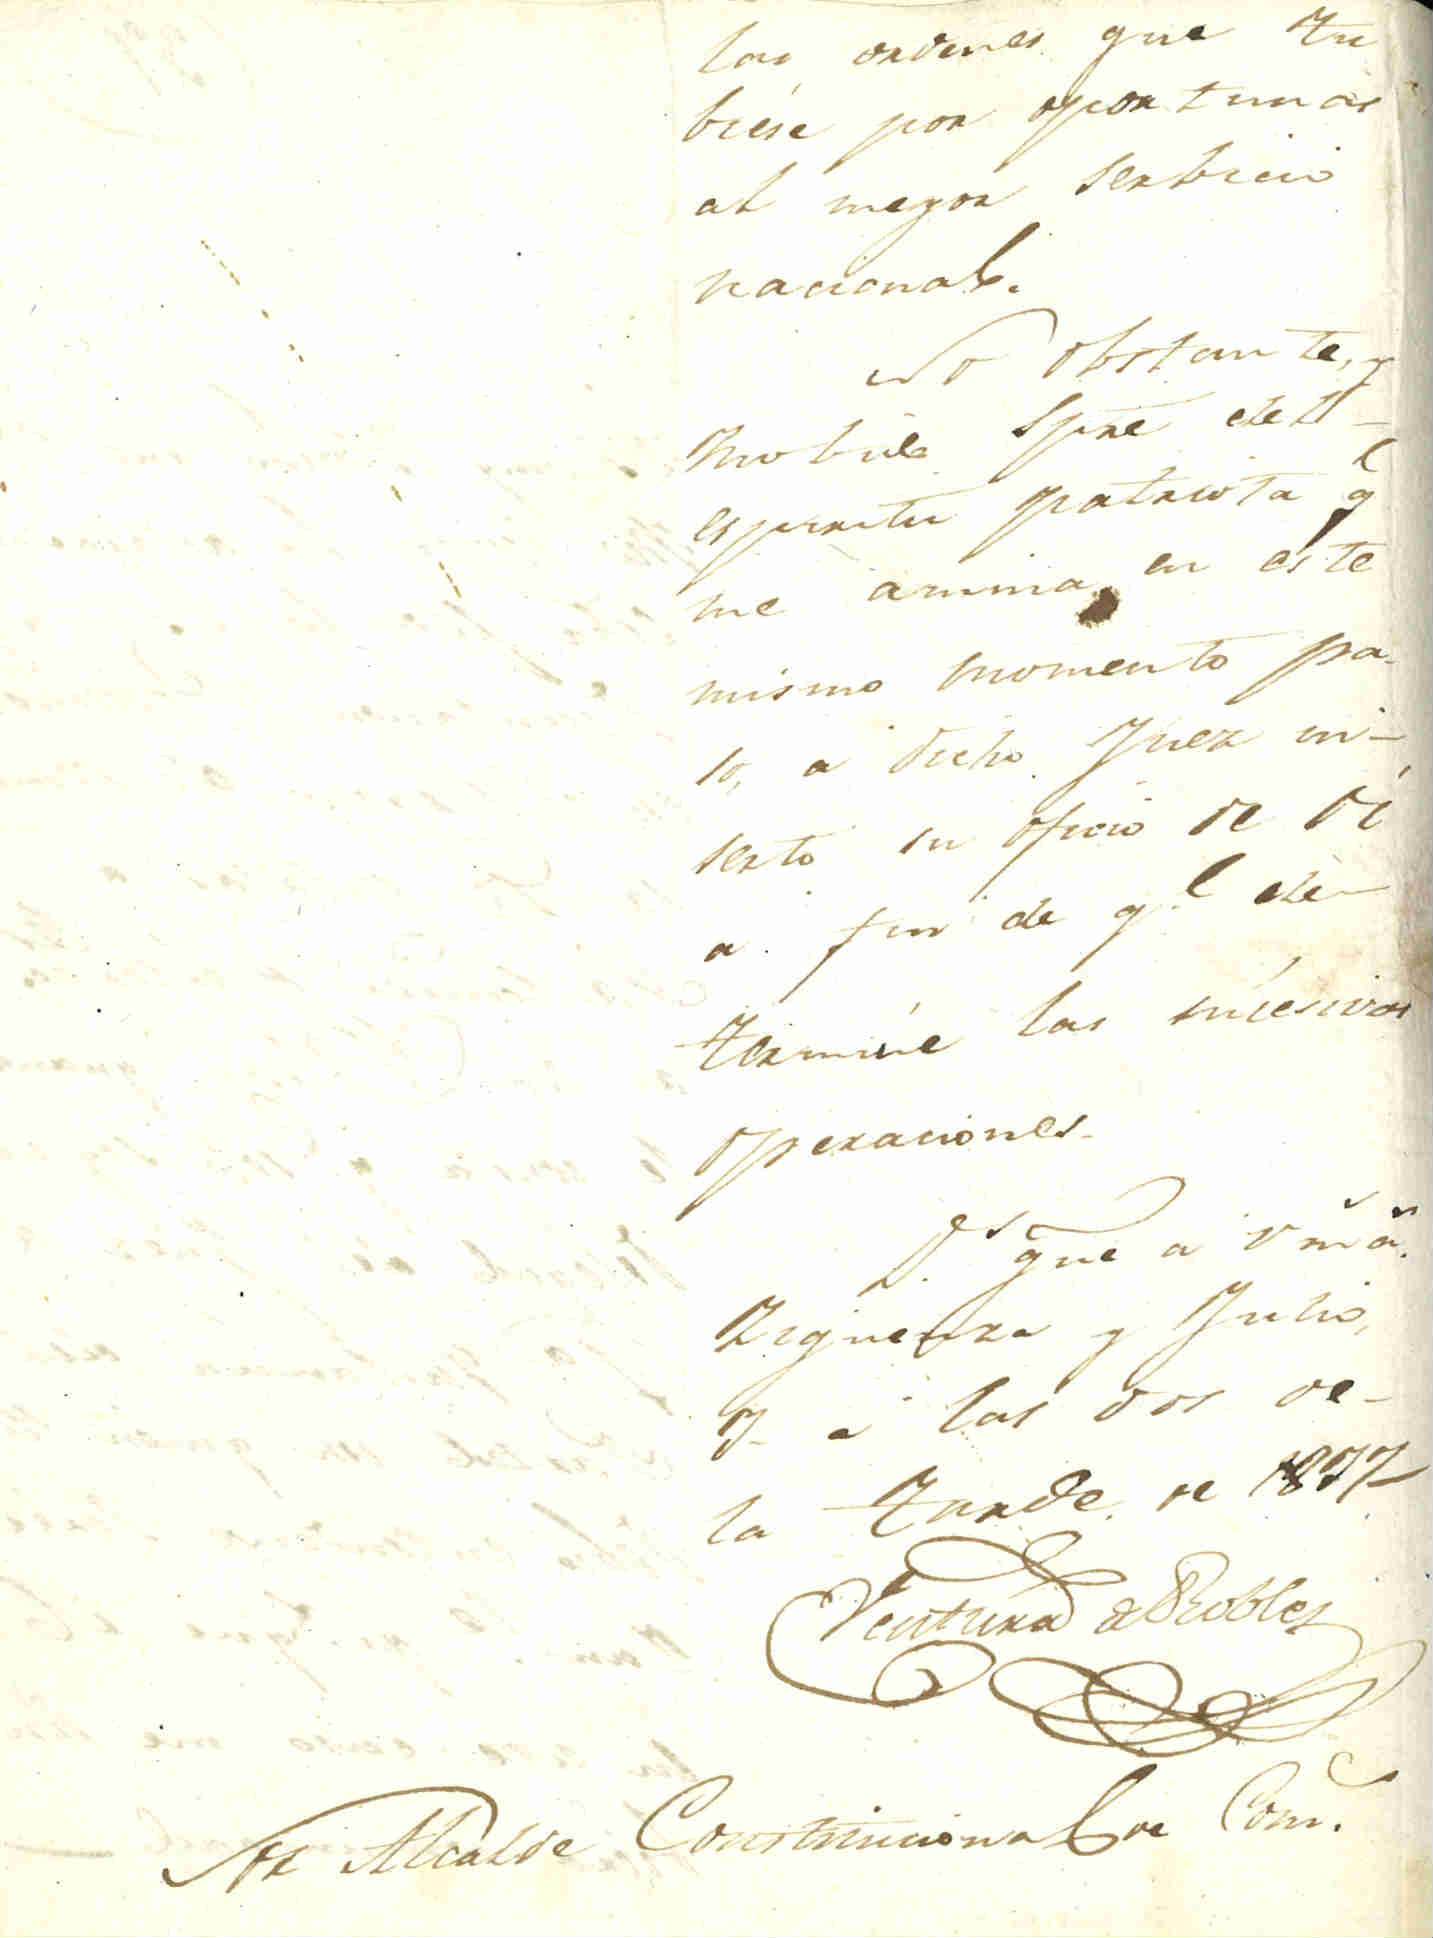 las ordenes que tu
biese por oportunas
al mayor serbicio
nacional.
No obstante, y
mobido spre del
espiritu patriota q
me anima, en este
mismo momento pa-
so, a dicho Juez in-
serto su oficio de V
a fin de q.e de-
termine las sucesivas
operaciones.
D.s gue a V m.s a.s
Ziguenza y Julio,
7 a las dos de
la tarde de 1822
Ventura de Robles
Sor Alcalde Constitucional de Com.